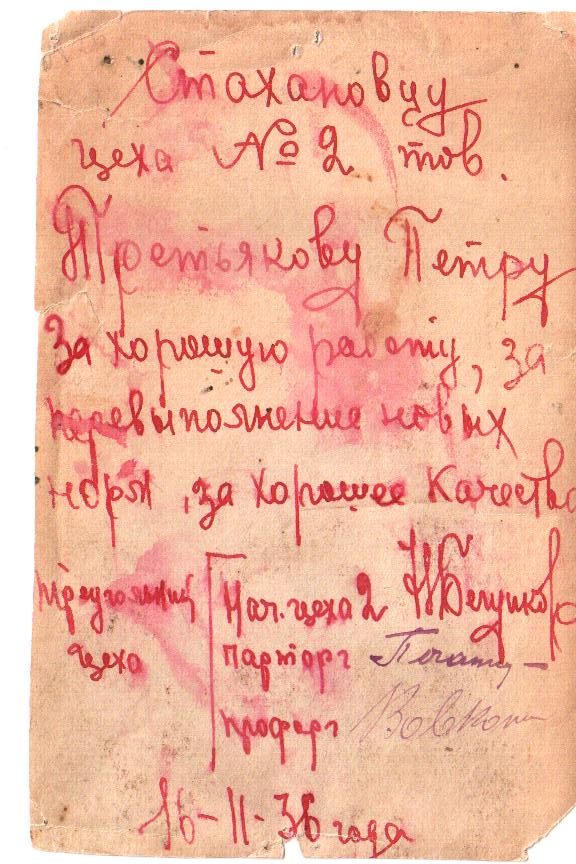 Стахановцу
цеха № 2 тов.
Третьякову Петру
За хорошую работу, за
перевыполнение новых
норм, за хорошее качество
Треугольник
цеха
Нач. цеха 2
Парторг
профорг
16-II-36 года